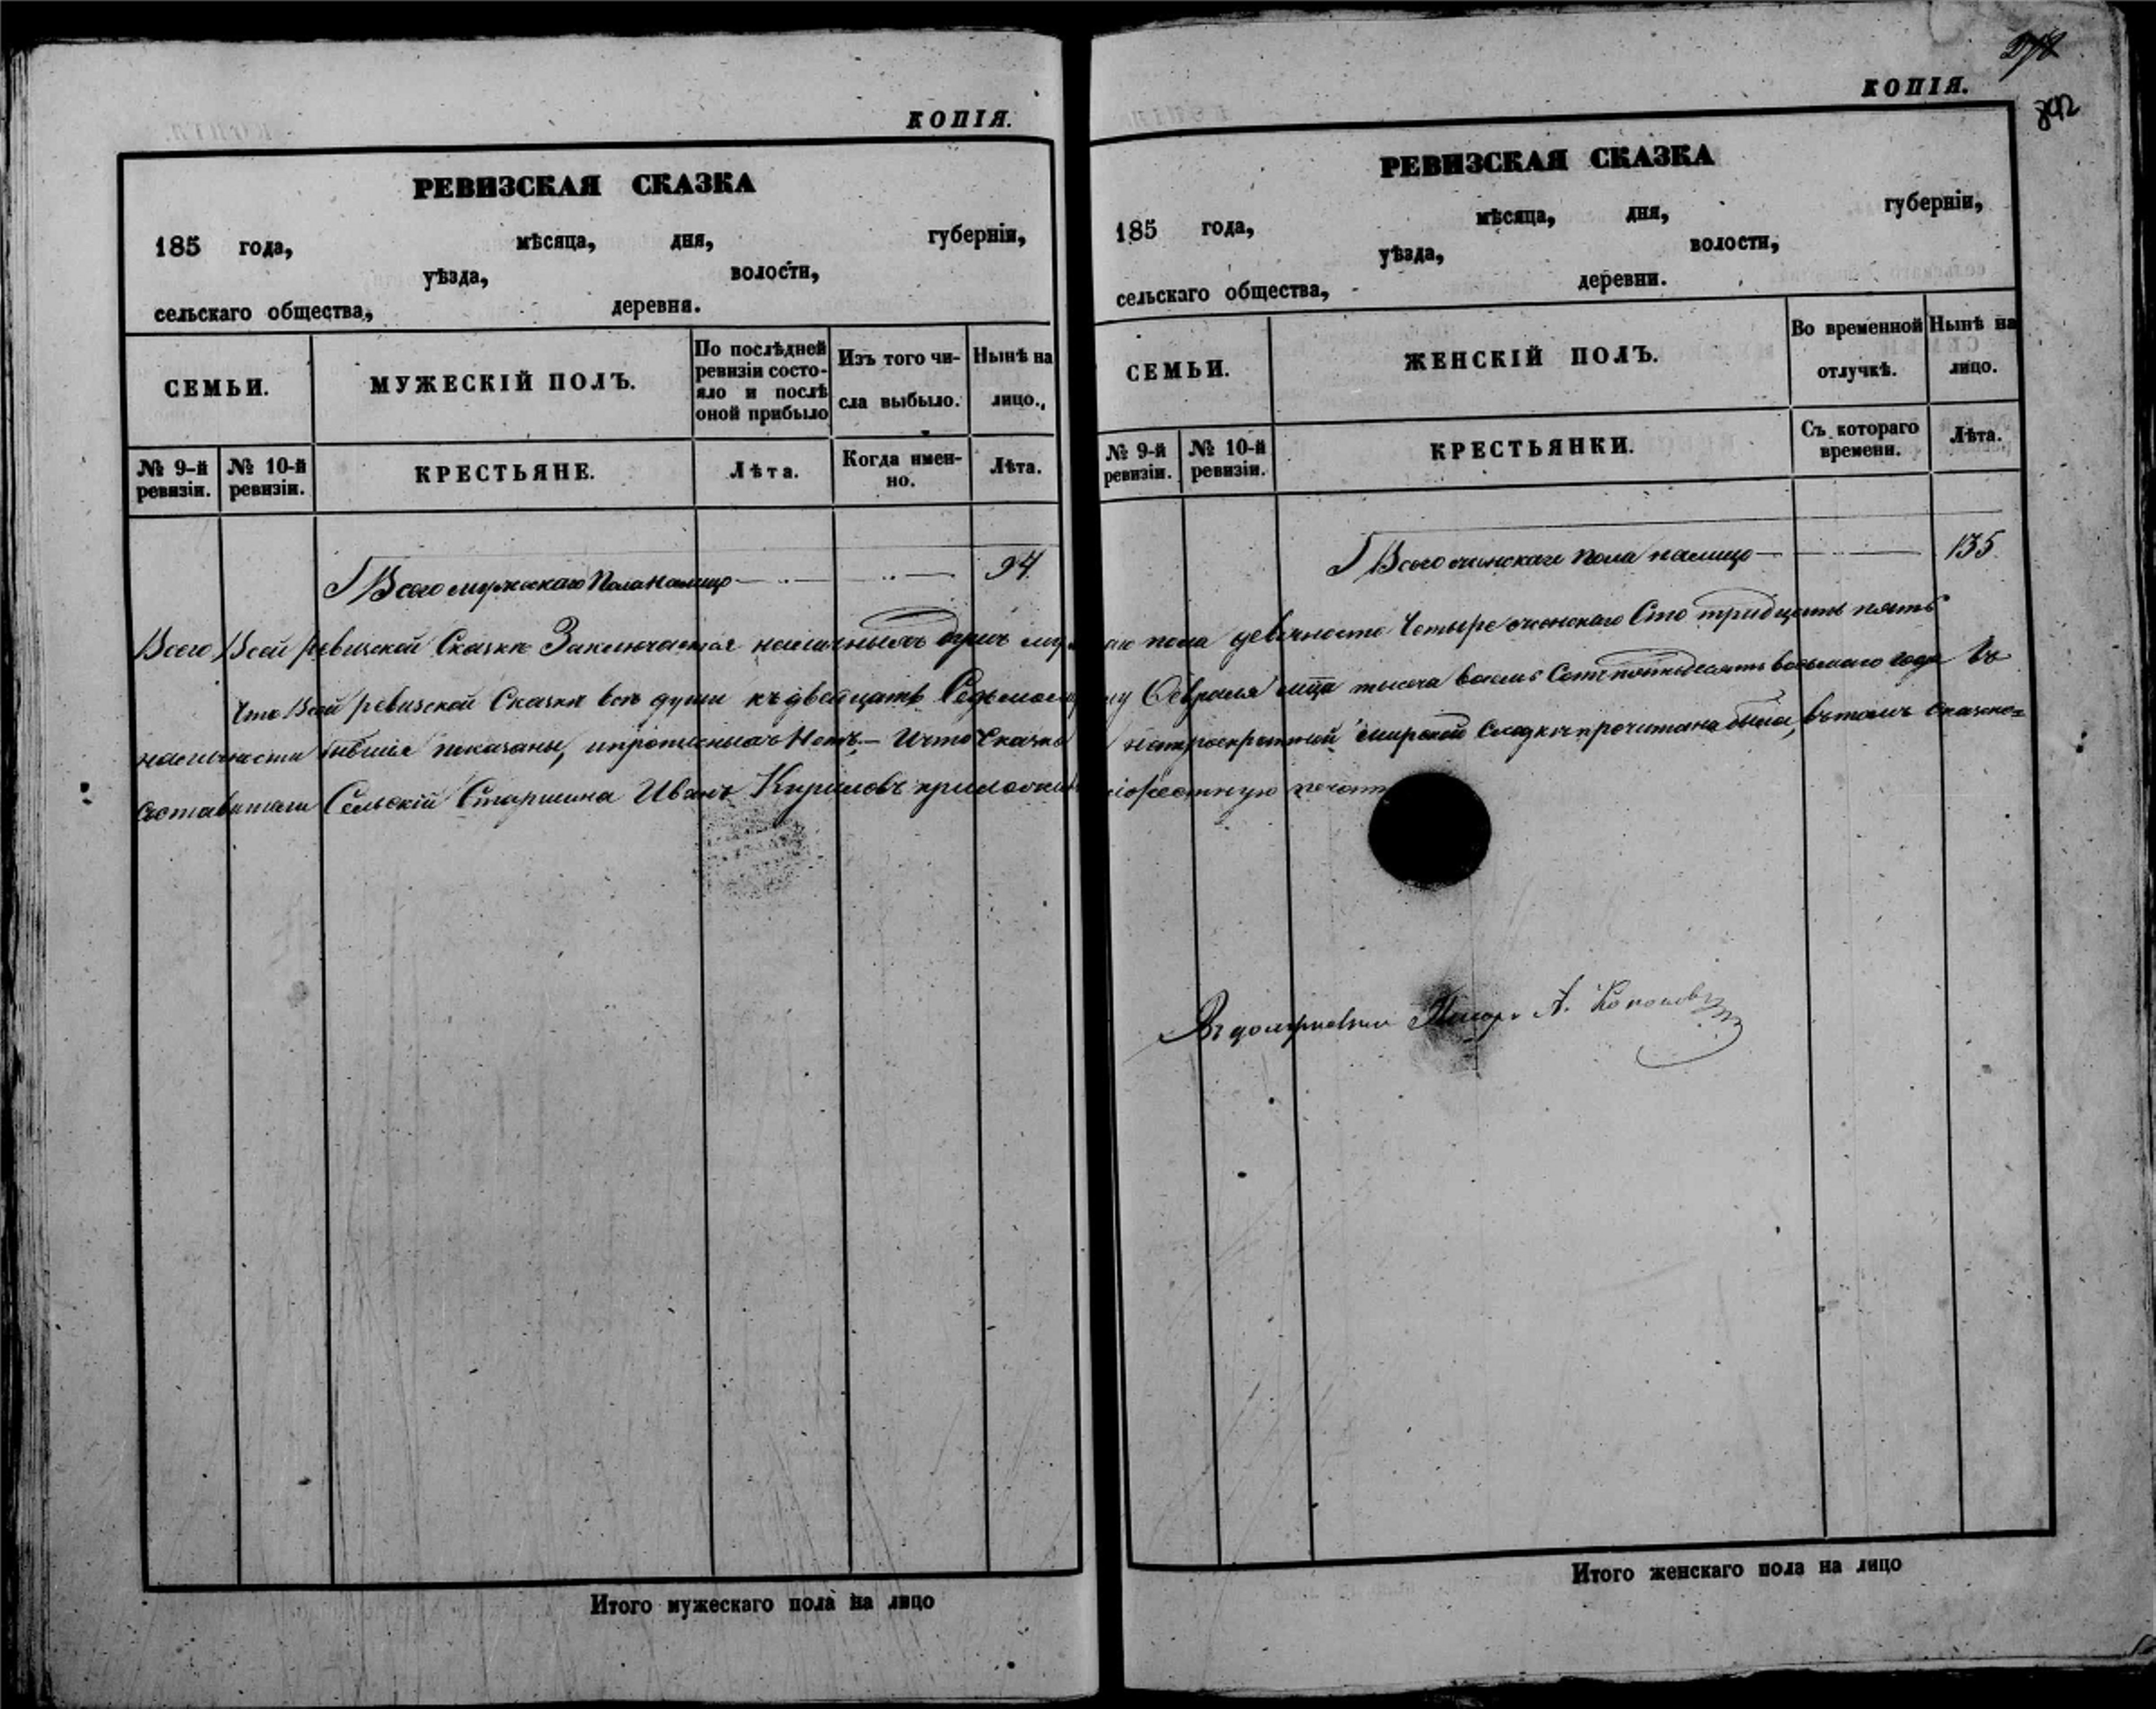 КОПІЯ.
РЕВИЗСКАЯ СКАЗКА
185 года, мѣсяца, дня, губерніи,
уѣзда, волости,
сельскаго общества, деревни.
СЕМЬИ.
МУЖЕСКІЙ ПОЛЪ.
По послѣдней ревизіи состояло и послѣ оной прибыло
Изъ того числа выбыло.
Нынѣ на лицо.
№ 9-й ревизіи.
№ 10-й ревизіи.
КРЕСТЬЯНЕ.
Лѣта.
Когда именно.
Лѣта.
Всего мужескаго Пола налицо 94.
278
КОПІЯ.
842
РЕВИЗСКАЯ СКАЗКА
185 года, мѣсяца, дня, губерніи,
уѣзда, волости,
сельскаго общества, деревни.
СЕМЬИ.
ЖЕНСКІЙ ПОЛЪ.
Во временной отлучкѣ.
Нынѣ на лицо.
№ 9-й ревизіи.
№ 10-й ревизіи.
КРЕСТЬЯНКИ.
Съ котораго времени.
Лѣта.
Всего женскаго пола налицо 135
Всего Всей ревизской Сказкѣ Заключается наличныхъ душъ пола девяносто Четыре женскаго Сто тридцать пять
Что Всей ревизской Сказкѣ всѣ души къ двадцать Седьмому Февраля мца тысяча восемь Сотъ пятьдесятъ восьмаго года въ
наличности бывшіе показаны, и прописныхъ Нетъ. — И что Сказка на троекратной мирской Сходкѣ прочитана была, въ томъ сказко=
составители Сельскій Старшина Иванъ Кириловъ приложилъ печать
Писарь А. Кононовъ
Итого мужескаго пола на лицо
Итого женскаго пола на лицо